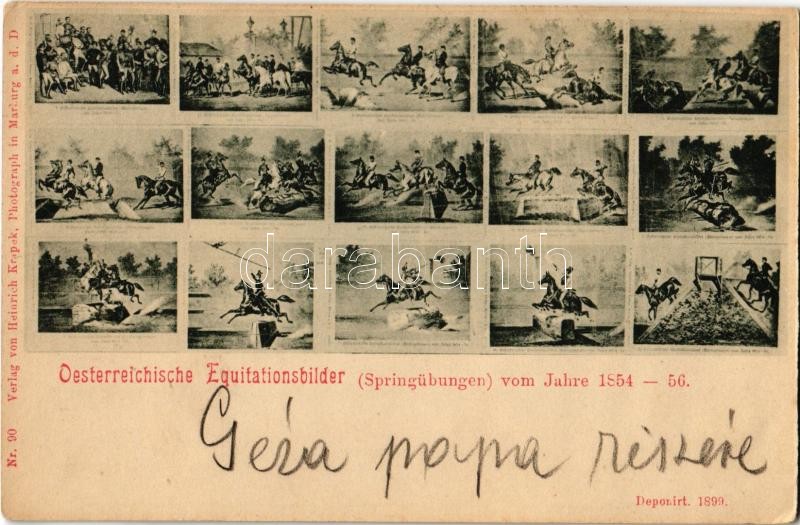 Nr. 90 Verlag von Heinrich Krapek, Photograph in Marburg a. d. D
darabanth
Oesterreichische Equitationsbilder (Springübungen) vom Jahre 1854 — 56.
Géza papa részére
Deponirt. 1899.